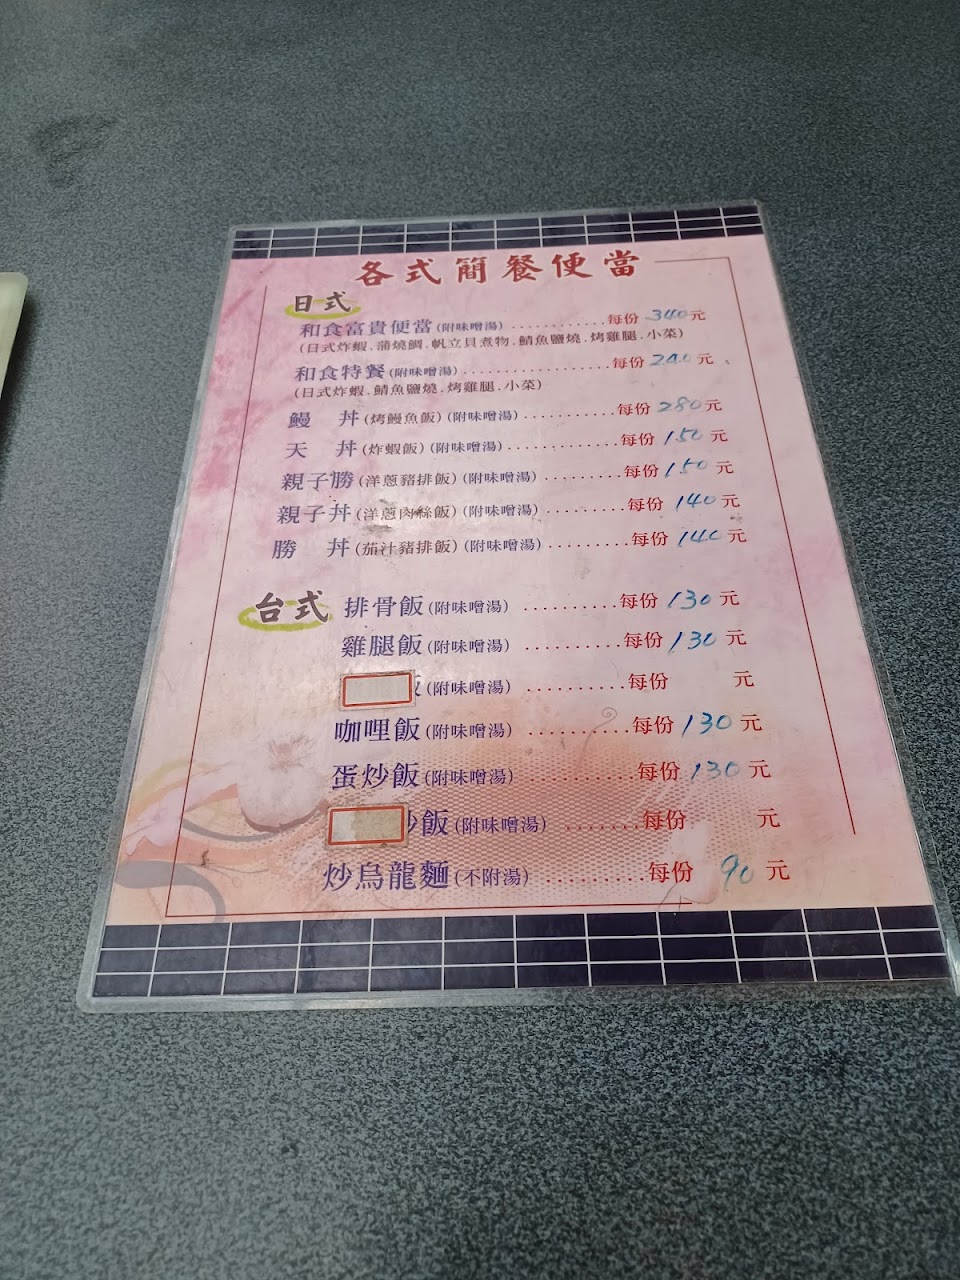 各式簡餐便當
日式
和食富貴便當(附味噌湯)............每份 340元
(日式炸蝦.蒲燒鯛.帆立貝煮物.鯖魚鹽燒.烤雞腿.小菜)
和食特餐(附味噌湯)..................每份 240 元
(日式炸蝦.鯖魚鹽燒.烤雞腿.小菜)
鰻 丼(烤鰻魚飯)(附味噌湯)...........每份 280元
天 丼(炸蝦飯)(附味噌湯)..............每份 150 元
親子勝(洋蔥豬排飯)(附味噌湯)..........每份 150 元
親子丼(洋蔥肉絲飯)(附味噌湯)..........每份 140 元
勝 丼(茄汁豬排飯)(附味噌湯)..........每份 140 元
台式 排骨飯(附味噌湯)..........每份 130 元
雞腿飯(附味噌湯)..........每份 130 元
(附味噌湯)..........每份 元
咖哩飯(附味噌湯)..........每份 130 元
蛋炒飯(附味噌湯)..........每份 130 元
炒飯(附味噌湯).......每份 元
炒烏龍麵(不附湯)..........每份 90 元